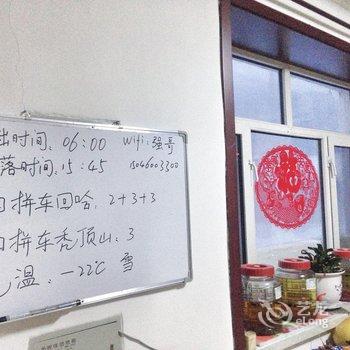 出时间: 06:00 Wifi: 强哥
落时间: 15:45 15046003300
日拼车回哈: 2+3+3
日拼车秃顶山: 3
温: -22℃ 雪
福
艺龙
eLong